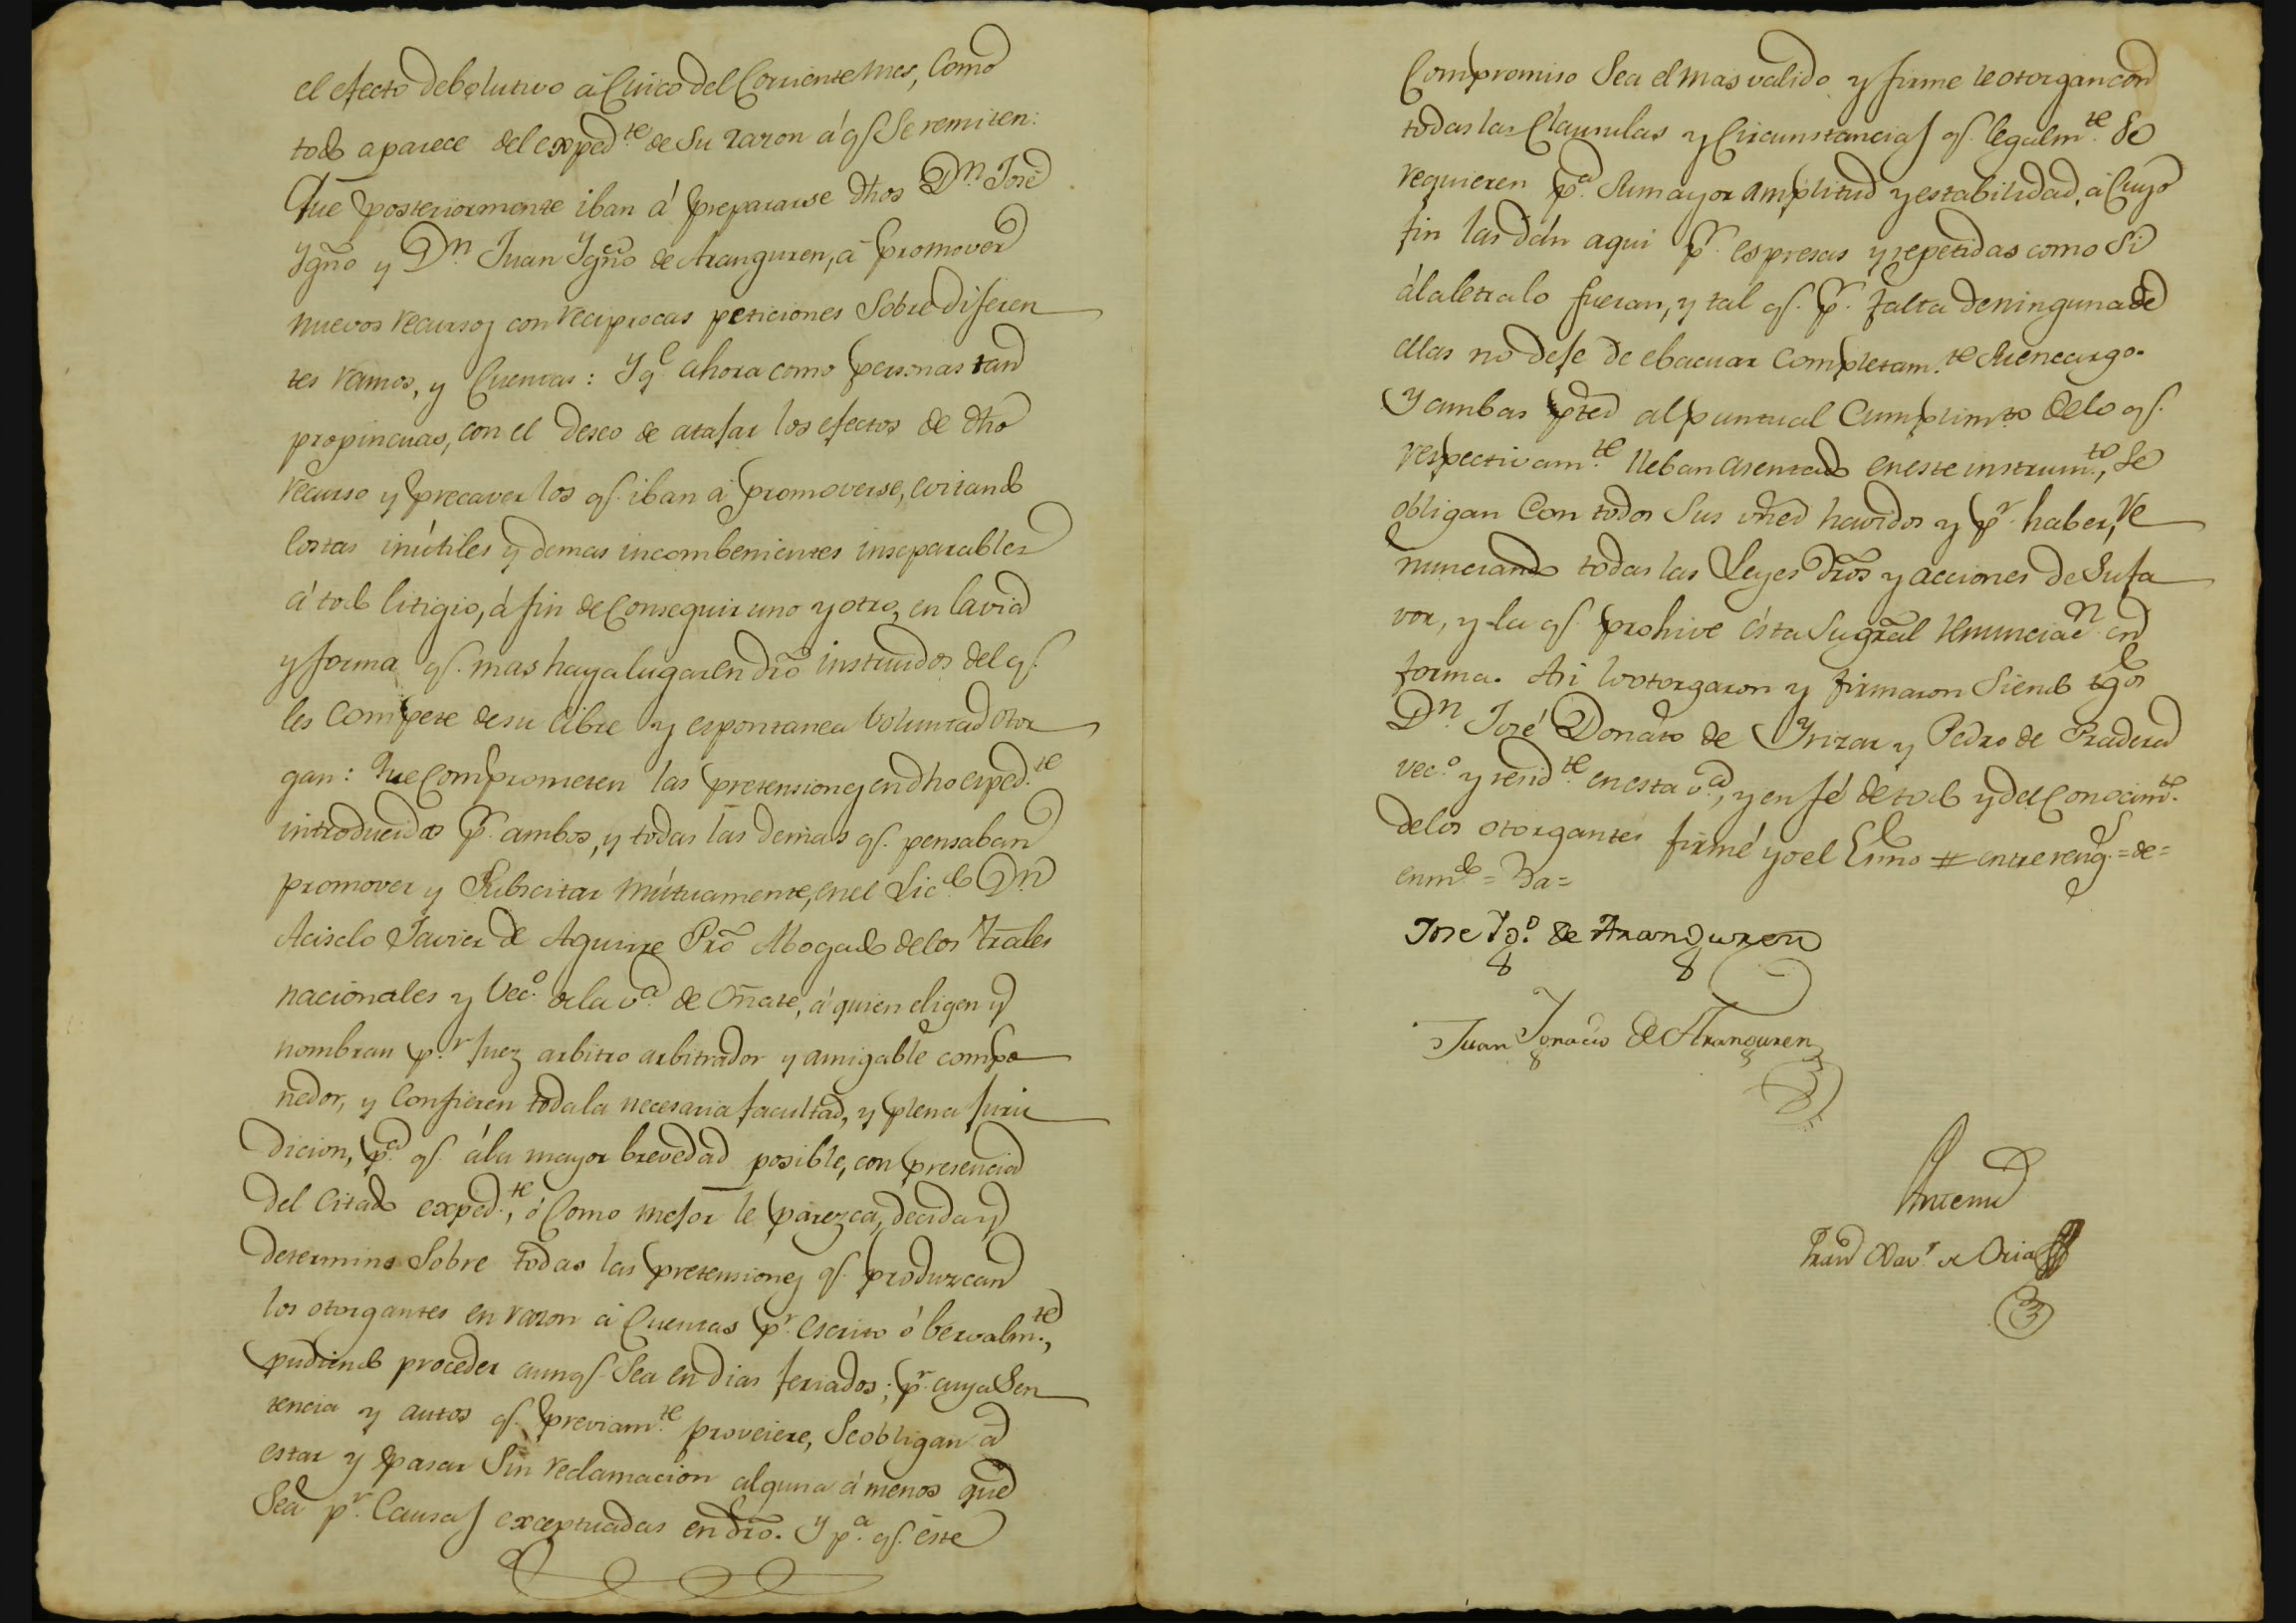 el efecto debolutivo á Cinco del Corriente Mes, Como
todo aparece del exped.te de Su razon á q.e Se remiten:
Que posteriormente iban á prepararse dhos D.n José
Ygn.o y D.n Juan Ygn.o de Aranguren, á promover
nuevos recursos con reciprocas peticiones Sobre diferen
tes ramos, y Cuentas: Y q.e ahora como personas tan
propincuas, con el deseo de atajar los efectos de dho
recurso y precaver los q.e iban á promoverse, evitando
Costas inútiles y demas incombenientes inseparables
á todo litigio, á fin de Conseguir uno y otro, en la via
y forma q.e mas haya lugar en dro instruidos del q.e
les Compete de su libre y espontanea Voluntad otor
gan: Que Comprometen las pretensiones en dho exped.te
introducidas p.r ambos, y todas las demas q.e pensaban
promover y Subscitar Mútuamente, en el Lic.do D.n
Acisclo Javier de Aguirre Pro Abogado de los Trales
nacionales y Vec.o de la v.a de Oñate, á quien eligen y
nombran p.r Juez arbitro arbitrador y amigable compo
nedor, y Confieren toda la necesaria facultad, y plena juris
dicion, p.a q.e á la mayor brevedad posible, con presencia
del Citado exped.te, ó Como mejor le parezca, decida y
determine Sobre todas las pretensiones q.e produzcan
los otorgantes en razon á Cuentas p.r escrito ó berbalm.te,
pudiendo proceder aunq.e Sea en dias feriados; p.r cuya Sen
tencia y autos q.e previam.te proveiere, Se obligan á
estar y pasar Sin reclamacion alguna á menos que
Sea p.r Causas exceptuadas en dro. Y p.a q.e este
Compromiso Sea el mas valido y firme le otorgan con
todas las Cláusulas y Circunstancias q.e legalm.te Se
requieren p.a Su mayor amplitud y estabilidad, á Cuyo
fin las dán aqui p.r espresas y repetidas como Si
á la letra lo fueran, y tal q.e p.r falta de ninguna de
ellas no deje de ebacuar Completam.te Su encargo.
Y ambas ptes al puntual Cumplim.to de lo q.e
respectivam.te lleban asentado en este instrum.to, Se
obligan Con todos Sus vñes havidos y p.r haber, re
nunciando todas las Leyes dros y acciones de Su fa
vor, y la q.e prohive ésta Su gral renunciac.n en
forma. Asi lo otorgaron y firmaron Siendo tgos
D.n José Donato de Yrizar y Pedro de Pradera
vec.o y resid.te en esta v.a, y en fé de todo y del Conocim.to
de los otorgantes firmé yo el Esno # entrereng.s = de =
enm.do = Ba =
Jose Yg.o de Aranguren
Juan Ygnacio de Aranguren
Antemi
Fran.co Xav.r de Oria